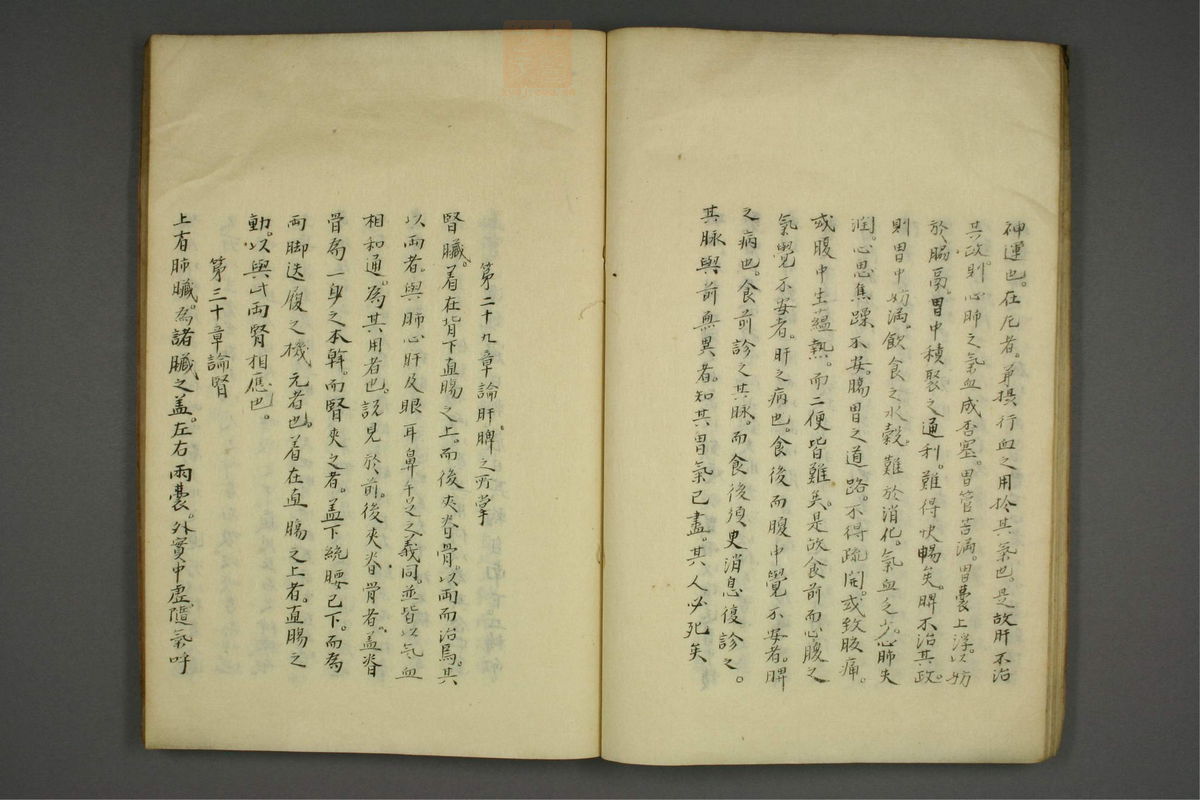 神運也。在尻者。單揚行血之用於其氣也。是故肝不治
其政。則心肺之氣血咸否塞。胃管苦滿。胃囊上浮。以妨
於膈鬲。胃中積聚之通利。難得快暢矣。脾不治其政。
則胃中妨滿。飲食之水穀。難於消化。氣血乏少。心肺失
潤。心思焦躁不安。腸胃之道路。不得疏開。或致腹痛。
或腹中生蘊熱。而二便皆難矣。是故食前而心腹之
氣覺不安者。肝之病也。食後而腹中覺不安者。脾
之病也。食前診之其脉。而食後須臾消息復診之。
其脉與前無異者。知其胃氣已盡。其人必死矣
第二十九章論肝脾之所掌
腎臟。着在背下直腸之上。而後夾脊骨。以両而治焉。其
以両者。與肺心肝及眼耳鼻手足之義同。並皆以气血
相和通。為其用者也。説見於前。後夾脊骨者。盖脊
骨為一身之本幹。而腎夾之者。盖下統腰已下。而為
両脚迭履之機元者也。着在直腸之上者。直腸之
動。以與此両腎相應也。
第三十章論腎
上有肺臟。為諸臟之盖。左右両囊。外實中虛。隨氣呼